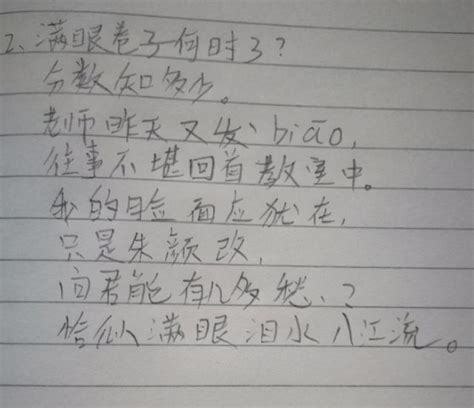 2、满眼卷子何时了？
分数知多少。
老师昨天又发biāo，
往事不堪回首教室中。
我的脸面应犹在，
只是朱颜改，
问君能有几多愁、？
恰似满眼泪水八江流。